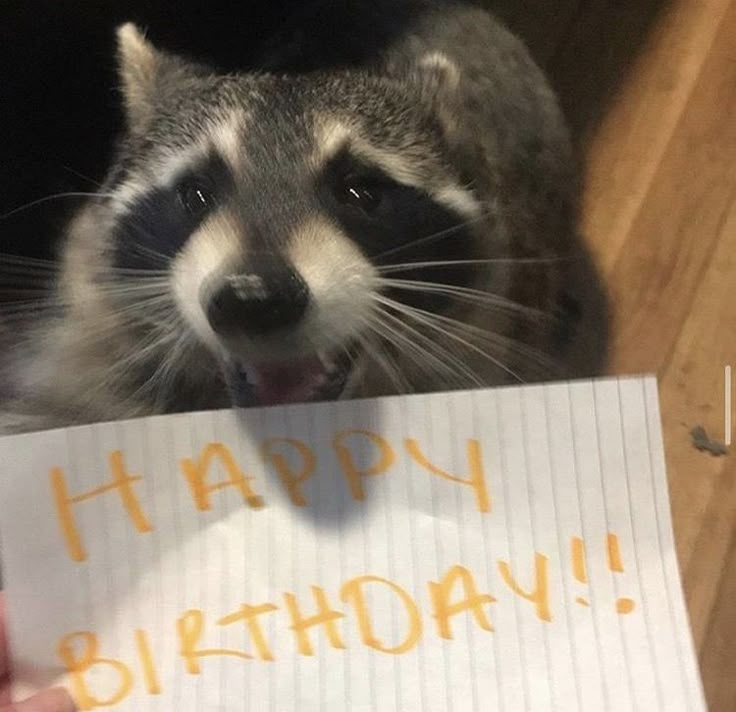 HAPPY
BIRTHDAY!!